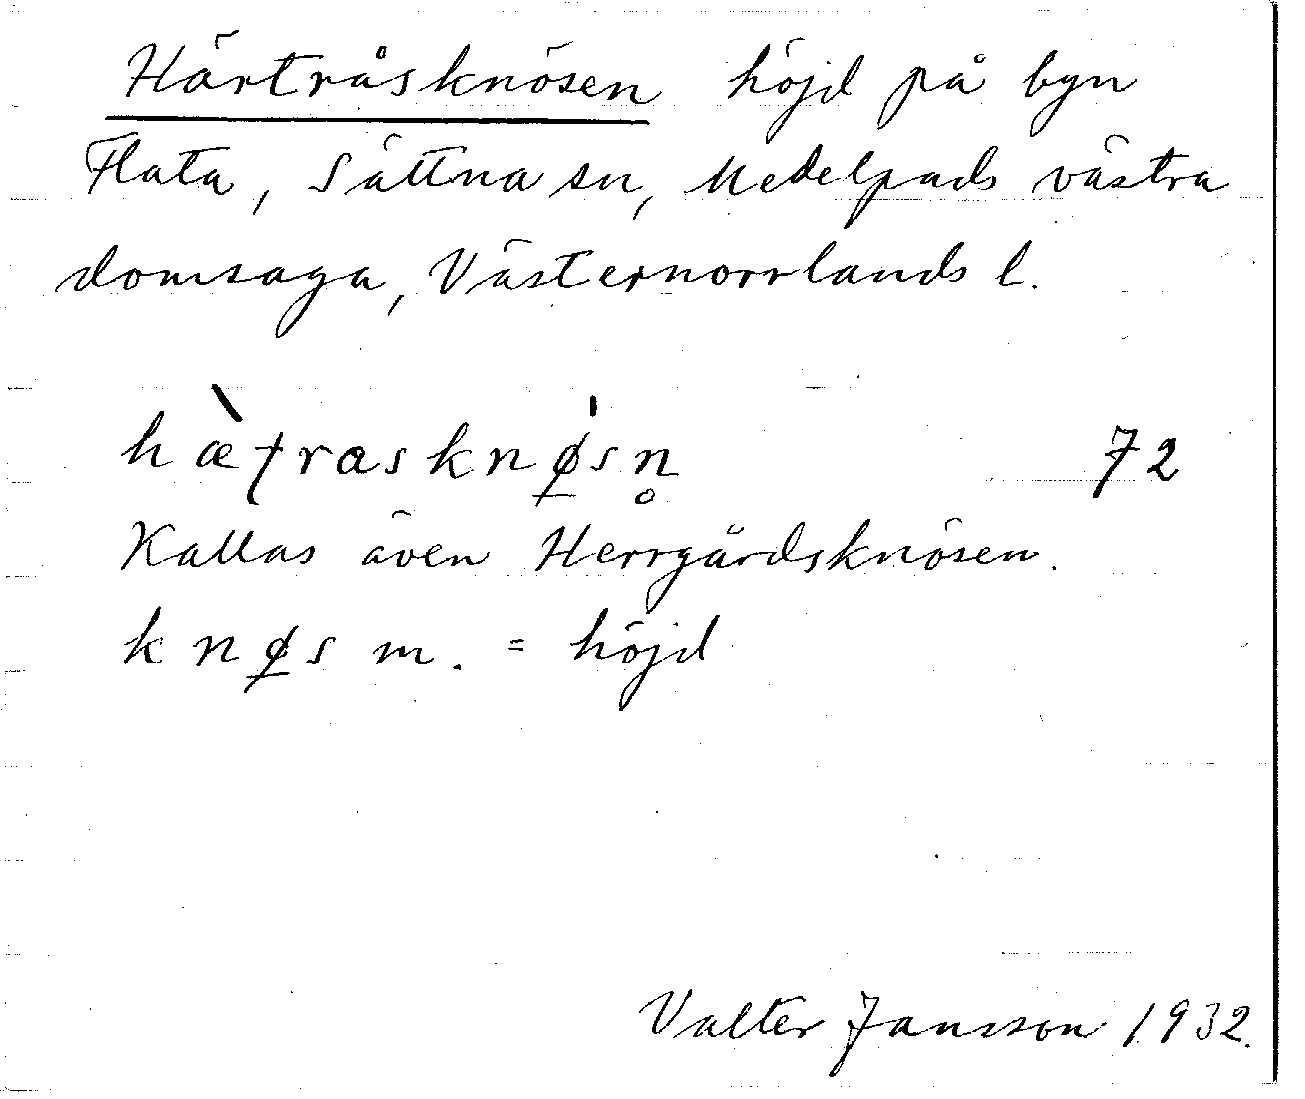 Härtråsknösen höjd på byn
Flata, Sättna sn, Medelpads västra
domsaga, Västernorrlands l.
hæ̀ʈrasknø̱̍sn̥ 72
Kallas även Herrgårdsknösen.
knø̱s m. = höjd
Valter Jansson 1932.